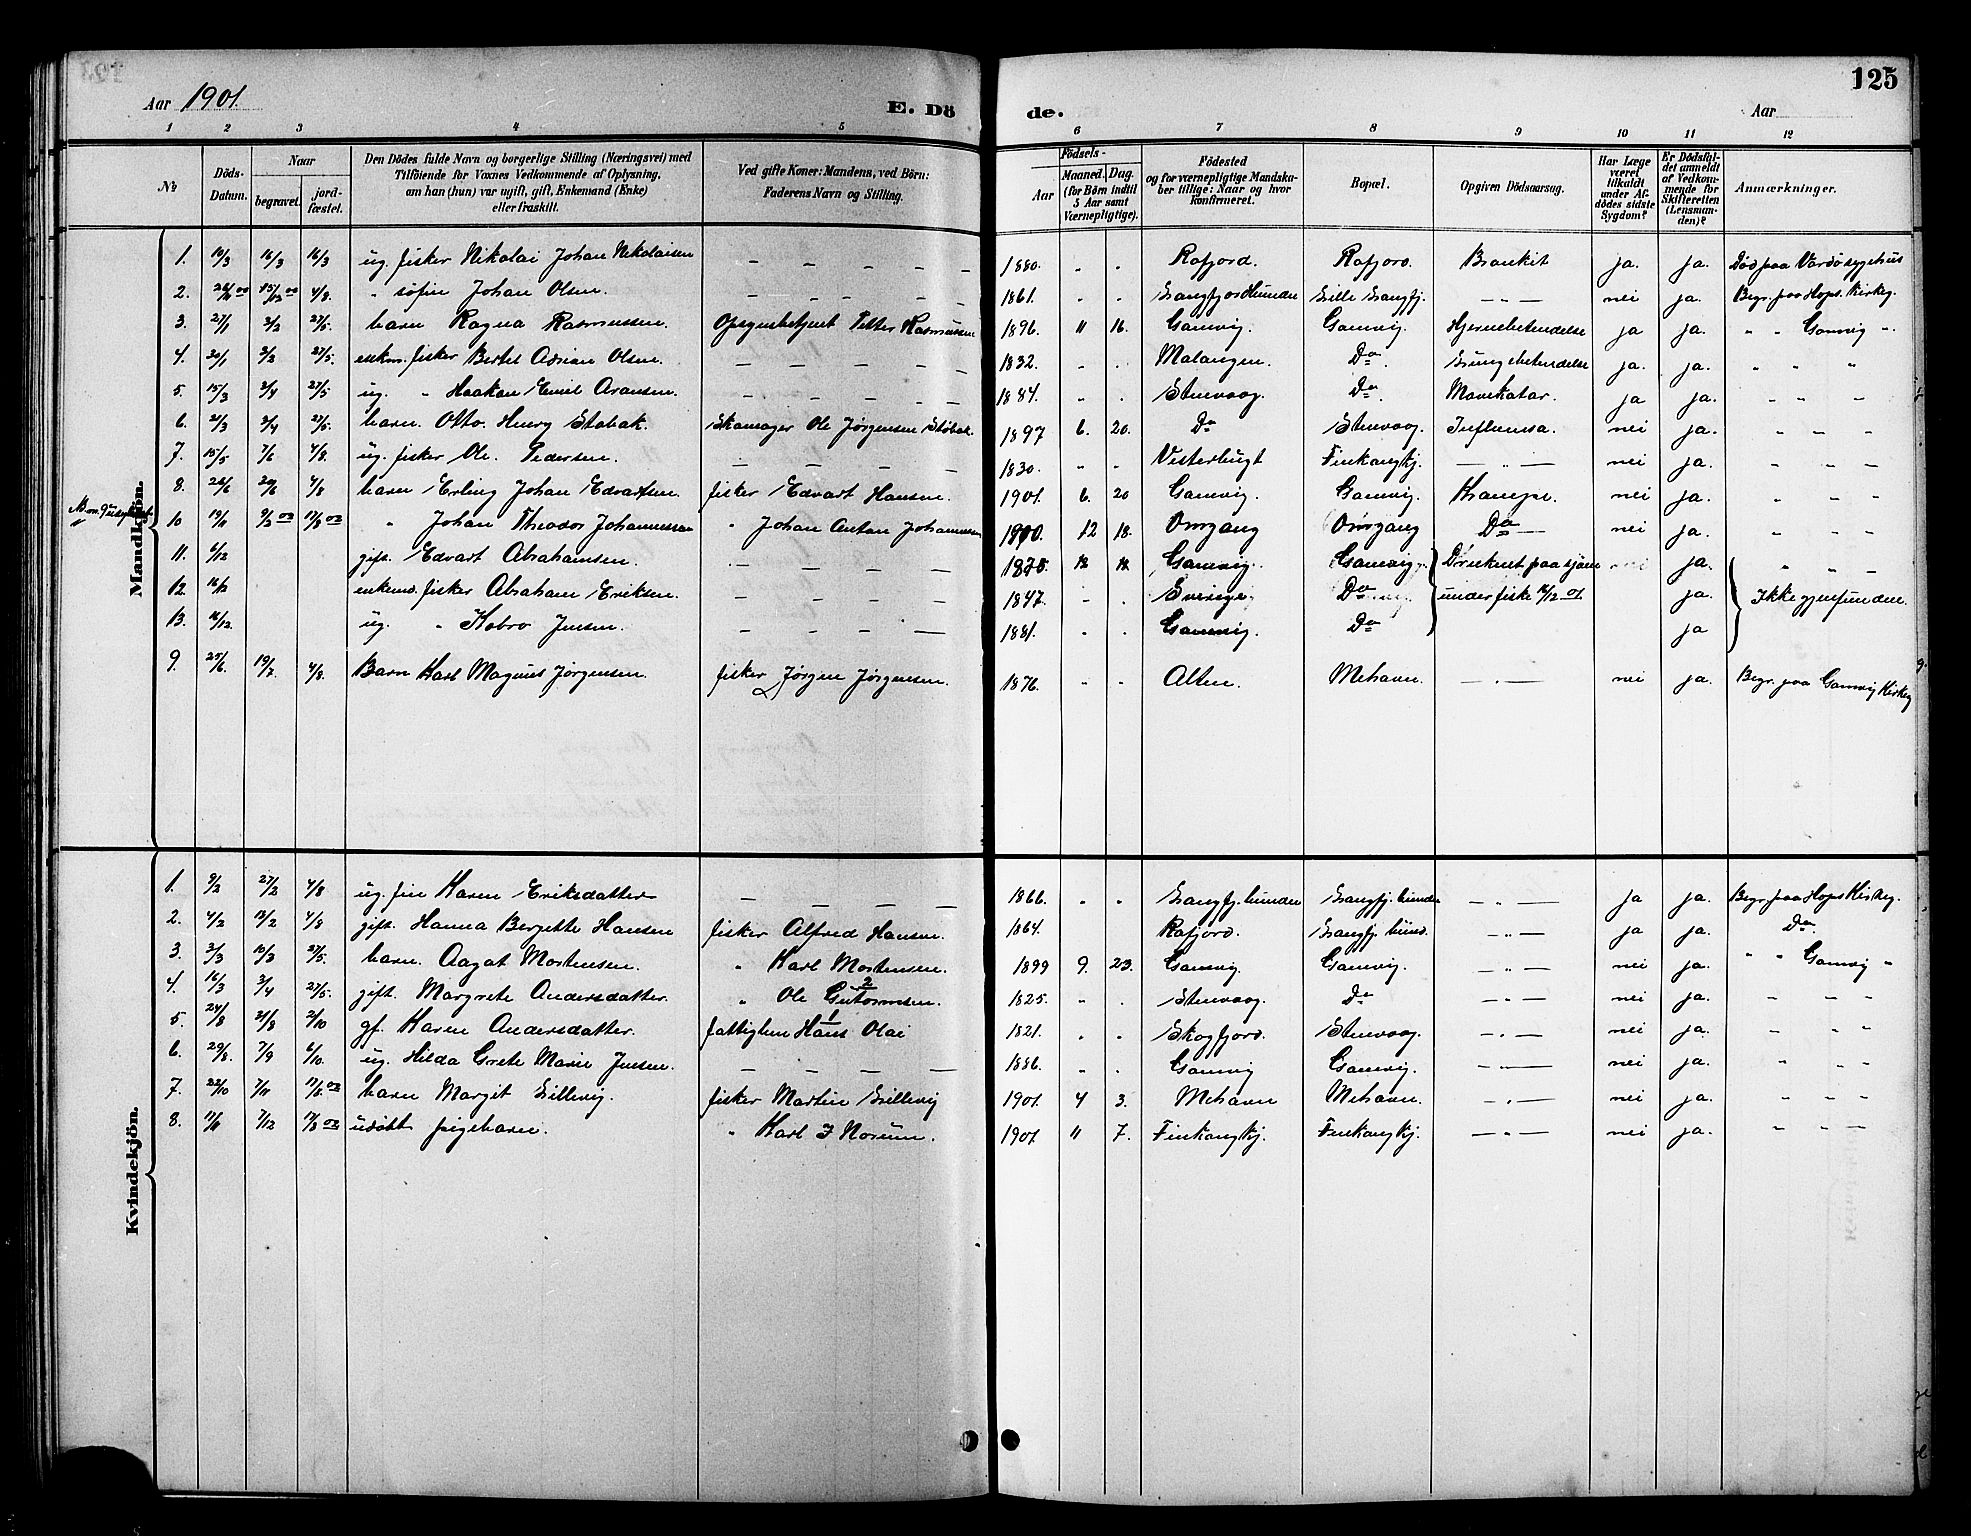 Aar 1901.
E. Döde.
125
Aar
1 2 3 4 5 6 7 8 9 10 11 12
No
Döds-Datum.
Naar
begravet.
jord-fæstet.
Den Dödes fulde Navn og borgerlige Stilling (Næringsvei) med
Tilföiende for Voxnes Vedkommende af Oplysning,
om han (hun) var ugift, gift, Enkemand (Enke)
eller fraskilt.
Ved gifte Koner: Mandens, ved Börn:
Faderens Navn og Stilling.
Födsels-
Aar
Maaned. Dag.
(for Børn indtil
5 Aar samt
Værnepligtige).
Födested
og for værnepligtige Mandska-
ber tillige: Naar og hvor
konfirmeret.
Bopæl.
Opgiven Dödsaarsag.
Har Læge
været
tilkaldt
under Af-
dödes sidste
Sygdom?
Er Dödsfal-
det anmeldt
af Vedkom-
mende for
Skifteretten
(Lensman-
den)?
Anmærkninger.
Mandkjön.
1. 10/3 16/3 16/3 ug. fisker Nikolai Johan Nikolaisen — — — — — 1880. " " Rafjord. Rafjord. Bronkit ja. ja. Död paa Vardö sygehus
2. 26/11 00 15/12 00 4/8. " søfin Johan Olsen. — — — — — 1861. " " Langfjordbunden Lille Langfj. — " — nei ja. Begr. paa Hops. Kirkeg.
3. 27/1 3/2 27/5. barn Ragna Rasmussen. Opsynsbetjent Petter Rasmussen 1896. 11 16. Gamvig. Gamvig. Hjernebetendelse ja ja. " " Gamvig ".
4. 20/1 3/2 27/5. enkm. fisker Bertel Adrian Olsen. — — — — — 1832. " " Malangen. Do Lungebetendelse ja. ja. " " "
5. 15/3 2/4 27/5 ug. " Haakon Emil Aronsen. — — — — — 1884. " " Stenvaag. Do Mavekatar. ja ja. " " "
6. 21/3 2/4 27/5 barn. Otto. Henry Stobak. Skomager Ole Jørgensen Støbak. 1897 6. 20. Do Stenvaag. Influensa. nei ja. " " "
7. 15/5 7/6 4/8. ug. fisker Ole. Pedersen. — — — — — 1830. " " Vesterbugt Finkongkj. — " — nei ja. " " "
8. 26/6 29/6 4/8 barn Erling Johan Edvartsen. fisker Edvart Hansen. 1901 6. 20 Gamvig. Gamvig. Krampe. nei ja. " " "
10 19/11 9/2 02 17/3 02 " Johan Theodor Johannessen " Johan Anton Johannessen 1900. 12 18. Omgang Omgang Do — nei ja. " " "
11. 6/12 gift. Edvart Abrahamsen. — — — — — 1875. Gamvig. Gamvig. Druknet paa sjöen ja. " " "
12. 16/12 enkemd. fisker Abraham Eriksen. 1847. " " Sverige. Do under fiske 16/12 01 ja. Ikke gjenfunden.
13. 16/12. ug. " Kobro Jensen. — — — — 1881. " " Gamvig. Do ja
9. 25/6 19/7. 4/8. Barn Karl Magnus Jørgensen fisker Jørgen Jørgensen. 1876. " " Alten. Mehavn. — " — nei ja. Begr. paa Gamvig Kirkeg
Kvindekjön.
1. 9/2 27/2 4/8 ug. fin Karen Eriksdatter — — — — 1866. " " Langfj. bunden Langfj. bunden — " — ja ja. Begr. paa Hops Kirkeg.
2. 4/2 13/2 4/8 gift. Hanna Bergitte Hansen fisker Alfred Hansen. 1864. " " Rafjord. Langfj. bund. — " — ja ja. Do
3. 3/3 10/3 27/5. barn. Aagot Mortensen. " Karl Mortensen. 1899 9. 23. Gamvig. Gamvig. — " — nei ja. " " Gamvig "
4. 16/3 3/4 27/5. gift. Margrete Andersdatter. " Ole Gutormsen. 1825. " " Stenvaag. Do — " — nei ja. " " "
5. 24/8 31/8 2/10 gf. Karen Andersdatter. fattiglem Hans Olai 1821. " " Skogfjord. Stenvaag. — " — nei ja. " " "
6. 29/8. 7/9 6/10. ug. Hilda Grete Marie Jensen. — — — — 1886. " " Gamvig Gamvig. — " — nei ja. " " "
7. 22/10 7/11 17/6. 02 barn Margit Lillevig. fisker Martin Lillevig 1901 4 3. Mehavn Mehavn. — " — nei ja. " " "
8. 7/11 7/12 17/3 02 udöbt pigebarn. " Karl J Norum. 1901 11 7. Finkongkj. Finkongkj. — " — nei ja. " " "